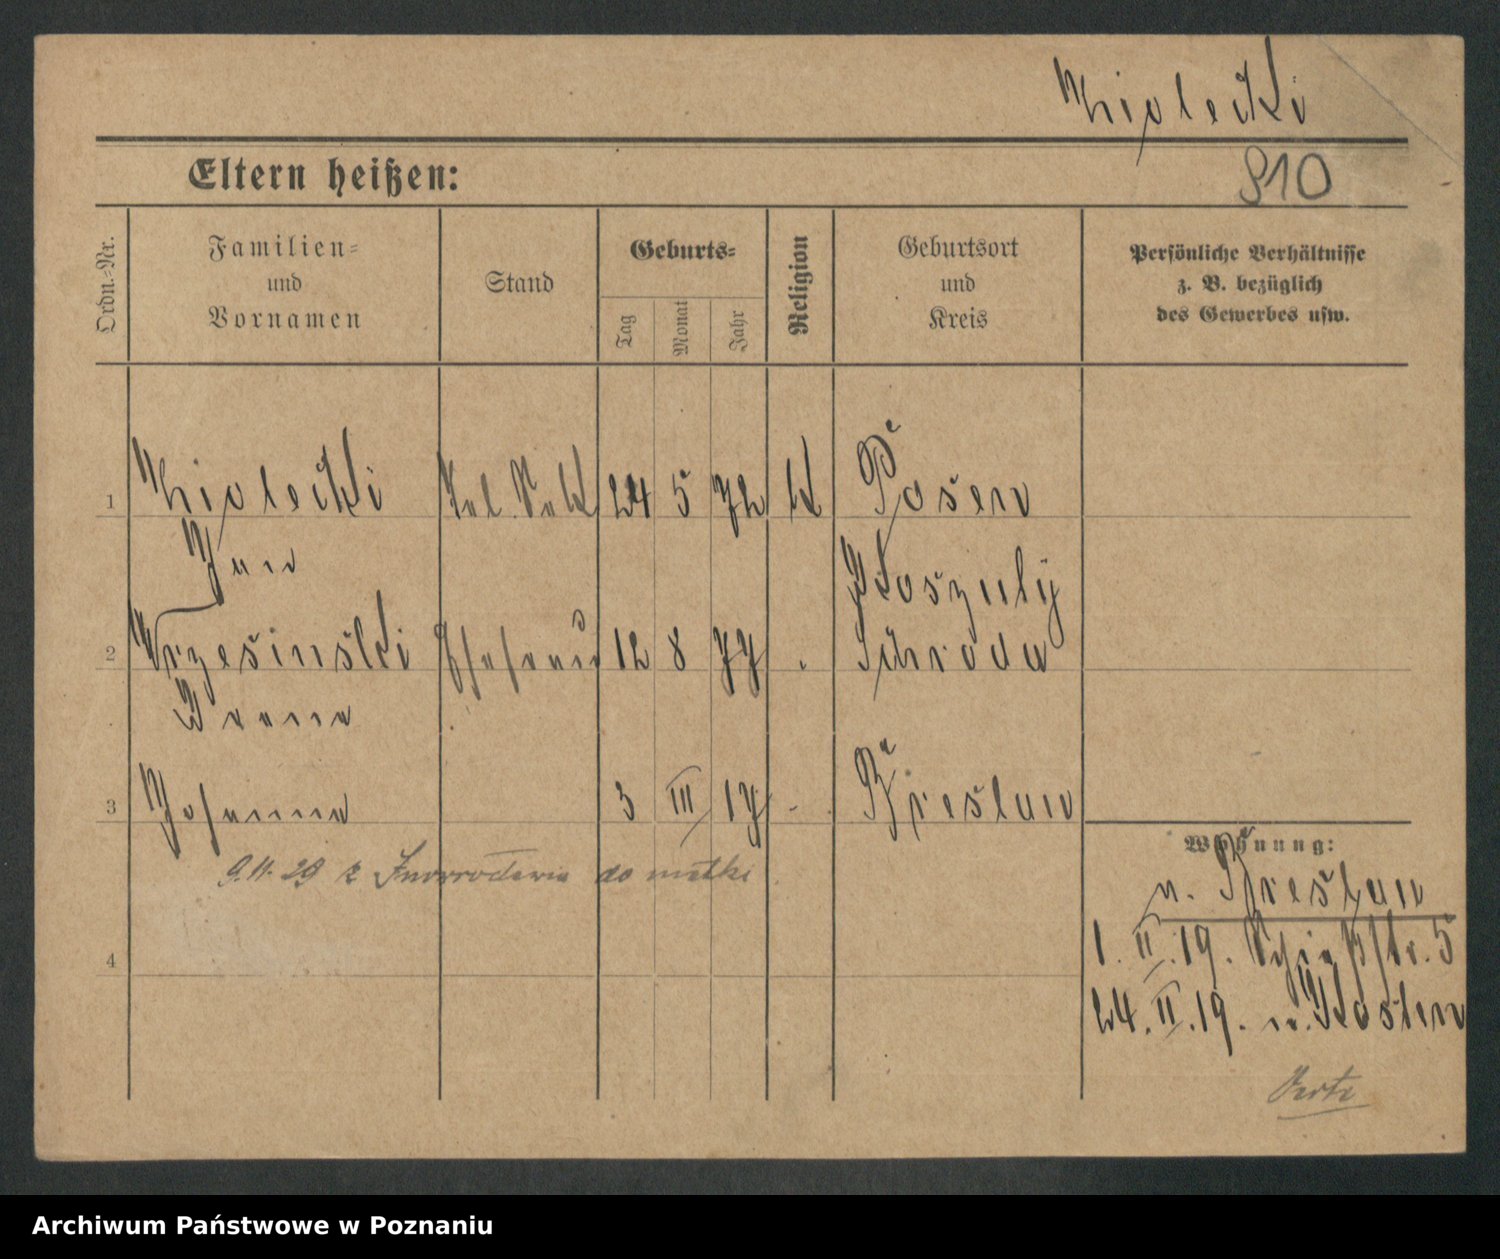 810
Eltern heißen:
Ordn.=Nr.
Familien=
und
Vornamen
Stand
Geburts=
Tag
Monat
Jahr
Religion
Geburtsort
und
Kreis
Persönliche Verhältnisse
z. B. bezüglich
des Gewerbes usw.
1 24 5 72 K Posen
Jan
2 Wrzesinski Ehefrau 12 8 77 Schroda
3 Johanna 3 III 17 Breslau
9.11.29 z Inowrocławia do matki
4
Wohnung:
n. Breslau
1. II. 19. Schießstr. 5
24. II. 19. n. Kosten
Archiwum Państwowe w Poznaniu